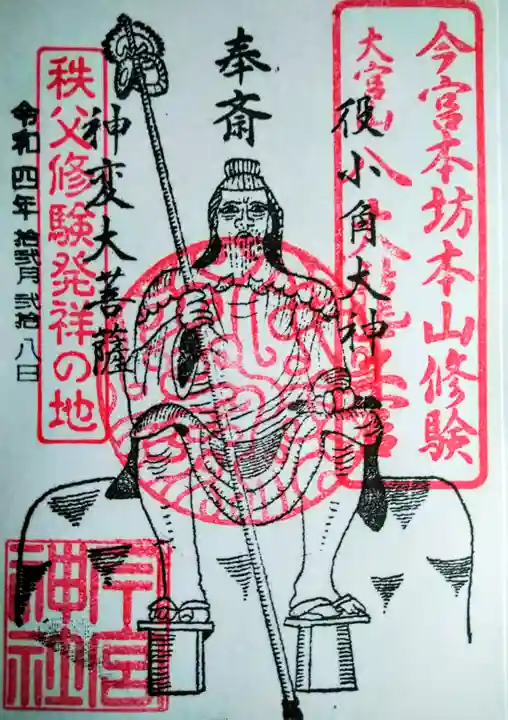 今宮本坊本山修験
大宮山八大龍王宮
役小角大神
奉斎
神変大菩薩
秩父修験発祥の地
令和四年 拾弐月 弐拾八日
今宮神社